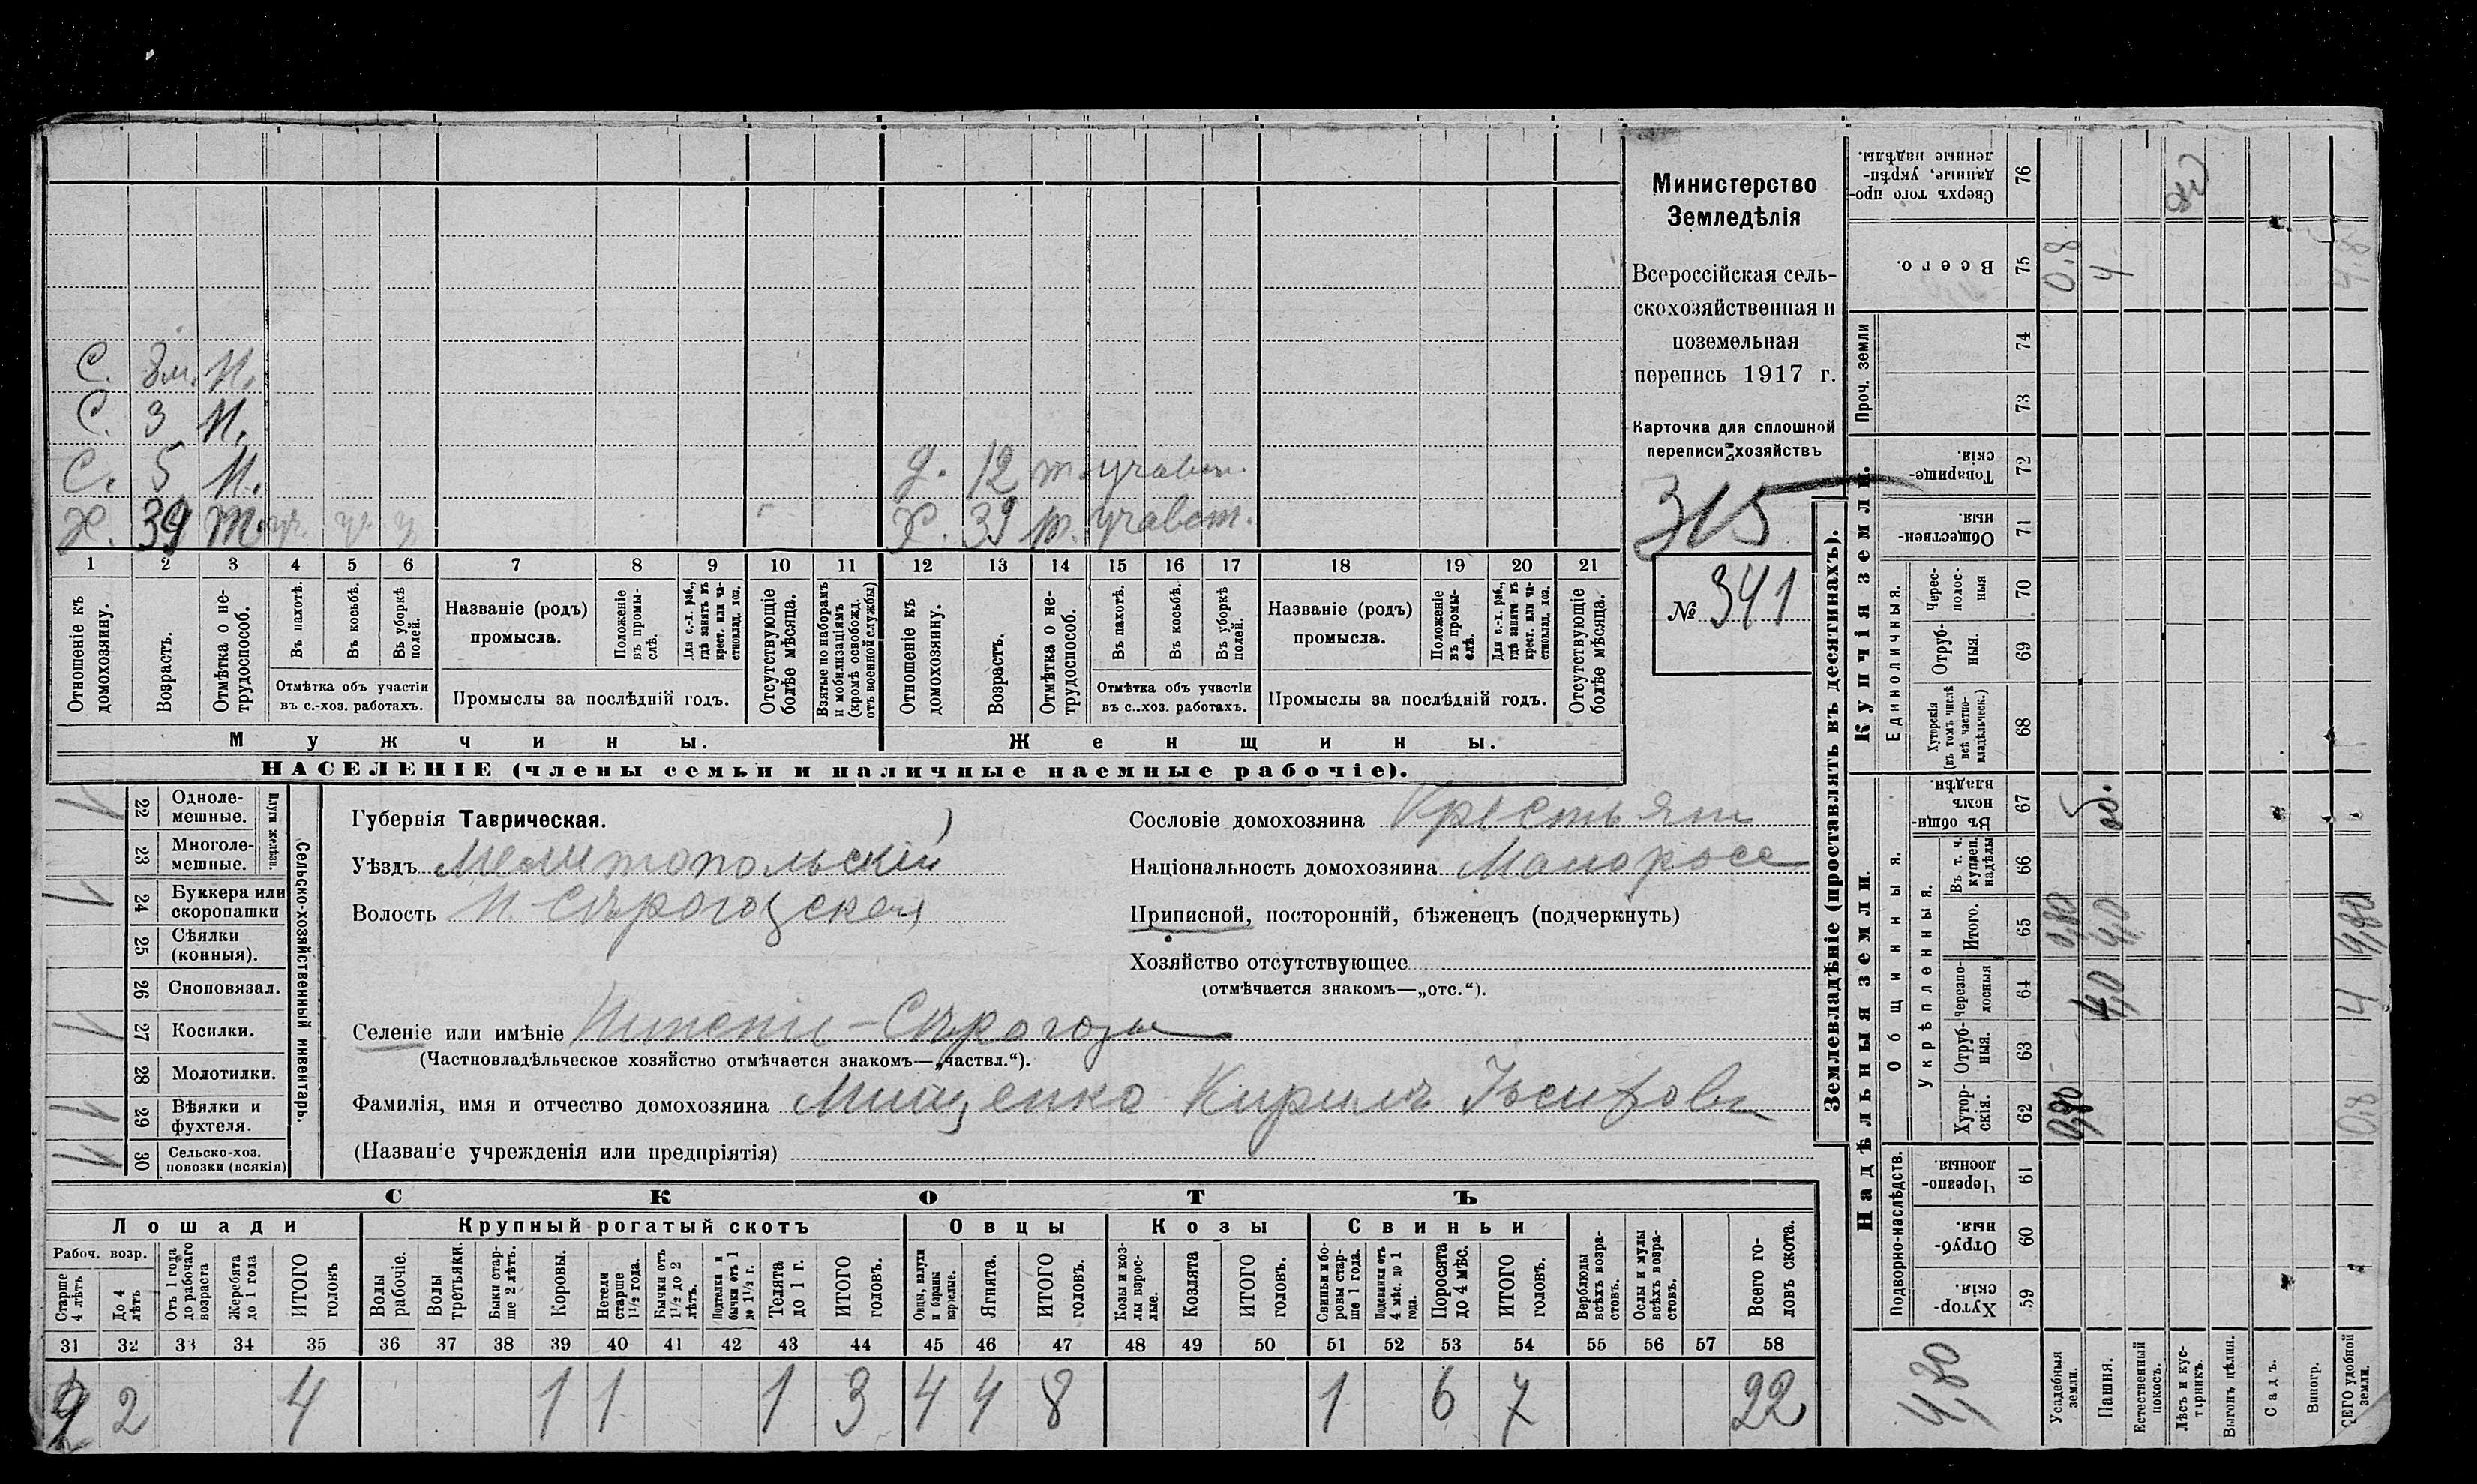 С. 3м. Н.
С. 3 Н.
С. 5 Н. д. 12 т. участ.
Х. 39 Т. уч. уч. у Х. 39 т. участ.
1 2 3 4 5 6 7 8 9 10 11 12 13 14 15 16 17 18 19 20 21
Отношеніе къ домохозяину.
Возрастъ.
Отмѣтка о не-трудоспособ.
Въ пахотѣ.
Въ косьбѣ.
Въ уборкѣ полей.
Отмѣтка объ участіи
въ с.-хоз. работахъ.
Названіе (родъ)
промысла.
Положеніе въ промы-слѣ.
Для с.-х. раб., гдѣ занятъ въ крест. или ча-стновлад. хоз.
Промыслы за послѣдній годъ.
Отсутствующіе болѣе мѣсяца.
Взятые по наборамъ и мобилизаціямъ (кромѣ освобожд. отъ военной службы)
Отношеніе къ домохозяину.
Возрастъ.
Отмѣтка о не-трудоспособ.
Въ пахотѣ.
Въ косьбѣ.
Въ уборкѣ полей.
Отмѣтка объ участіи
въ с.-хоз. работахъ.
Названіе (родъ)
промысла.
Положеніе въ промы-слѣ.
Для с.-х. раб., гдѣ занята въ крест. или ча-стновлад. хоз.
Промыслы за послѣдній годъ.
Отсутствующіе болѣе мѣсяца.
Мужчины. Женщины.
НАСЕЛЕНІЕ (члены семьи и наличные наемные рабочіе).
Министерство
Земледѣлія
Всероссійская сель-
скохозяйственная и
поземельная
перепись 1917 г.
Карточка для сплошной
переписи хозяйствъ
315
№ 341
22 Одноле-мешные.
23 Многоле-мешные.
Плуги желѣзн.
24 Буккера или скоропашки
25 Сѣялки (конныя).
26 Сноповязал.
27 Косилки.
28 Молотилки.
29 Вѣялки и фухтеля.
30 Сельско-хоз. повозки (всякія)
Сельско-хозяйственный инвентарь.
Губернія Таврическая.
Уѣздъ Мелитопольскій
Волость Н. Сѣрогозская
Селеніе или имѣніе Нижніе-Сѣрогозы
(Частновладѣльческое хозяйство отмѣчается знакомъ—„частвл.“).
Фамилія, имя и отчество домохозяина Мищенко Кирилъ Іосифовъ
(Названіе учрежденія или предпріятія)
Сословіе домохозяина Крестьян
Національность домохозяина Малоросс
Приписной, посторонній, бѣженецъ (подчеркнуть)
Хозяйство отсутствующее
(отмѣчается знакомъ—„отс.“).
СКОТЪ
Лошади Крупный рогатый скотъ Овцы Козы Свиньи
Рабоч. возр.
Старше 4 лѣтъ
До 4 лѣтъ
Отъ 1 года до рабочаго возраста
Жеребята до 1 года
ИТОГО головъ
Волы рабочіе.
Волы третьяки.
Быки стар-ше 2 лѣтъ.
Коровы.
Нетели старше 1½ года.
Бычки отъ 1½ до 2 лѣтъ.
Подтелки и бычки отъ 1 до 1½ г.
Телята до 1 г.
ИТОГО головъ.
Овцы, валухи и бараны взрослые.
Ягнята.
ИТОГО головъ.
Козы и коз-лы взрос-лые.
Козлята
ИТОГО головъ.
Свиньи и бо-ровы стар-ше 1 года.
Подсвинки отъ 4 мѣс. до 1 года.
Поросята до 4 мѣс.
ИТОГО головъ.
Верблюды всѣхъ возра-стовъ.
Ослы и мулы всѣхъ возра-стовъ.
Всего го-ловъ скота.
31 32 33 34 35 36 37 38 39 40 41 42 43 44 45 46 47 48 49 50 51 52 53 54 55 56 57 58
2 2 4 1 1 1 3 4 4 8 1 6 7 22
Землевладѣніе (проставлять въ десятинахъ).
Надѣльныя земли. Купчія земли. Проч. земли
Подворно-наслѣдств. Общинныя. Укрѣпленныя. Единоличныя.
76 Сверхъ того про-данные, укрѣп-ленные надѣлы.
75 Всего. 0.8 4 4.8
74
73
72 Товарище-скія.
71 Обществен-ныя.
70 Черес-полос-ныя
69 Отруб-ныя.
68 Хуторскія (въ томъ числѣ всѣ частно-владѣльческ.)
67 Въ общи-номъ владѣн.
66 Въ т. ч. куплен. надѣлы
65 Итого. 0,80 4,0 4,80
64 черезпо-лосныя 4,0 4
63 Отруб-ныя.
62 Хутор-скія. 0,80 0.8
61 Черезпо-лосныя.
60 Отруб-ныя.
59 Хутор-скія.
4,80
Усадебныя земли.
Пашня.
Естественный покосъ.
Лѣсъ и кус-тарникъ.
Выгонъ цѣлин.
Садъ.
Виногр.
ВСЕГО удобной земли.